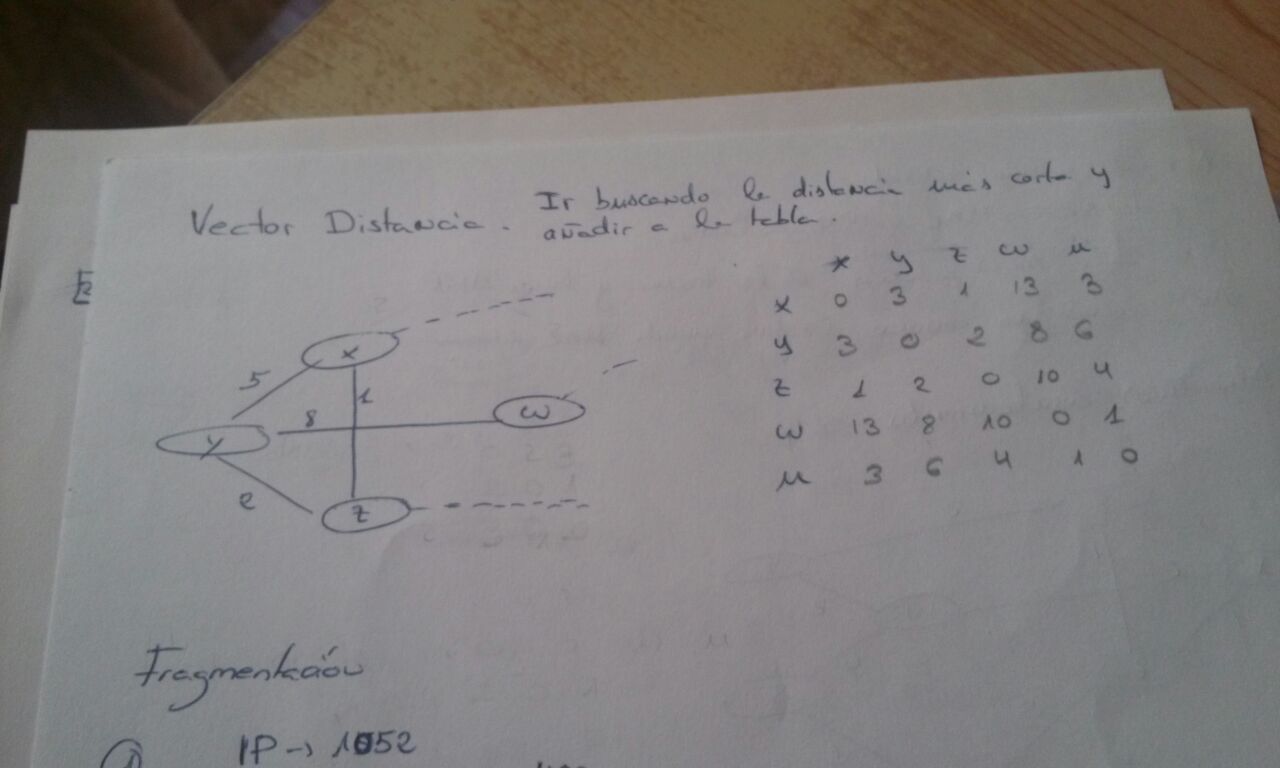 Vector Distancia. Ir buscando la distancia más corta y
añadir a la tabla.
E
x y z w u
x 0 3 1 13 3
y 3 0 2 8 6
z 1 2 0 10 4
w 13 8 10 0 1
u 3 6 4 1 0
x
5
1
8
w
y
2
z
Fragmentación
1
IP → 1052